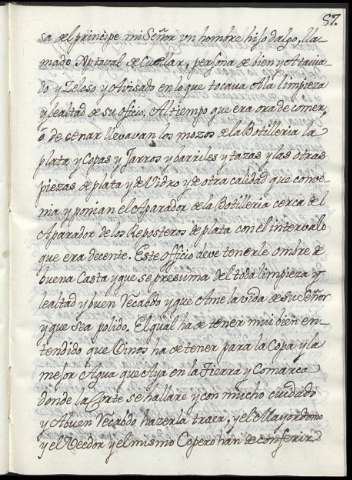 57.
sa del principe mi Señor un hombre hijo dalgo, lla
mado xpistoval de Cuellar, persona de bien y Ataviа
do y Zeloso y Avisado en lo que tocava A la limpieza
y lealtad de su oficio. Al tiempo que era ora de comer
o de cenar llevavan los mozos de la Botilleria la
plata y Copas y Jarros y barriles y tazas y las otras
piezas de plata y de Vidro y de otra calidad que conve
nia y ponian el Aparador de la Botilleria cerca del
Aparador de los Reposteros de plata con el intervalo
que era decente. Este Officio deve tenerle ombre de
buena Casta y que se presuma del toda limpieza y
lealtad y buen Recabdo y que Ame la vida de su Señor
y que sea polido. El qual ha de tener mui bien en
tendido que Vinos ha de tener para la Copa y la
mejor Agua que Aya en la Tierra y Comarca
donde la Corte se hallare y con mucho cuidado
y Abuen Recabdo hazerla traer, y el Mayordomo
y el Veedor y el mismo Copero han de conferir